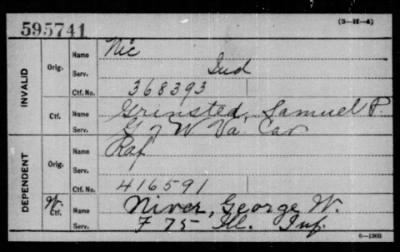 595741
(3-H-4)
INVALID
Orig.
Name Nic
Serv. Ind
Ctf. No. 368393
Ctf.
Name Grinsted, Samuel P.
Serv. G 7 W Va. Cav
DEPENDENT
Orig.
Name Raf
Serv.
Ctf. No. 416591
W. Ctf.
Name Niver, George W.
Serv. F 75 Ill. Inf.
6-1903